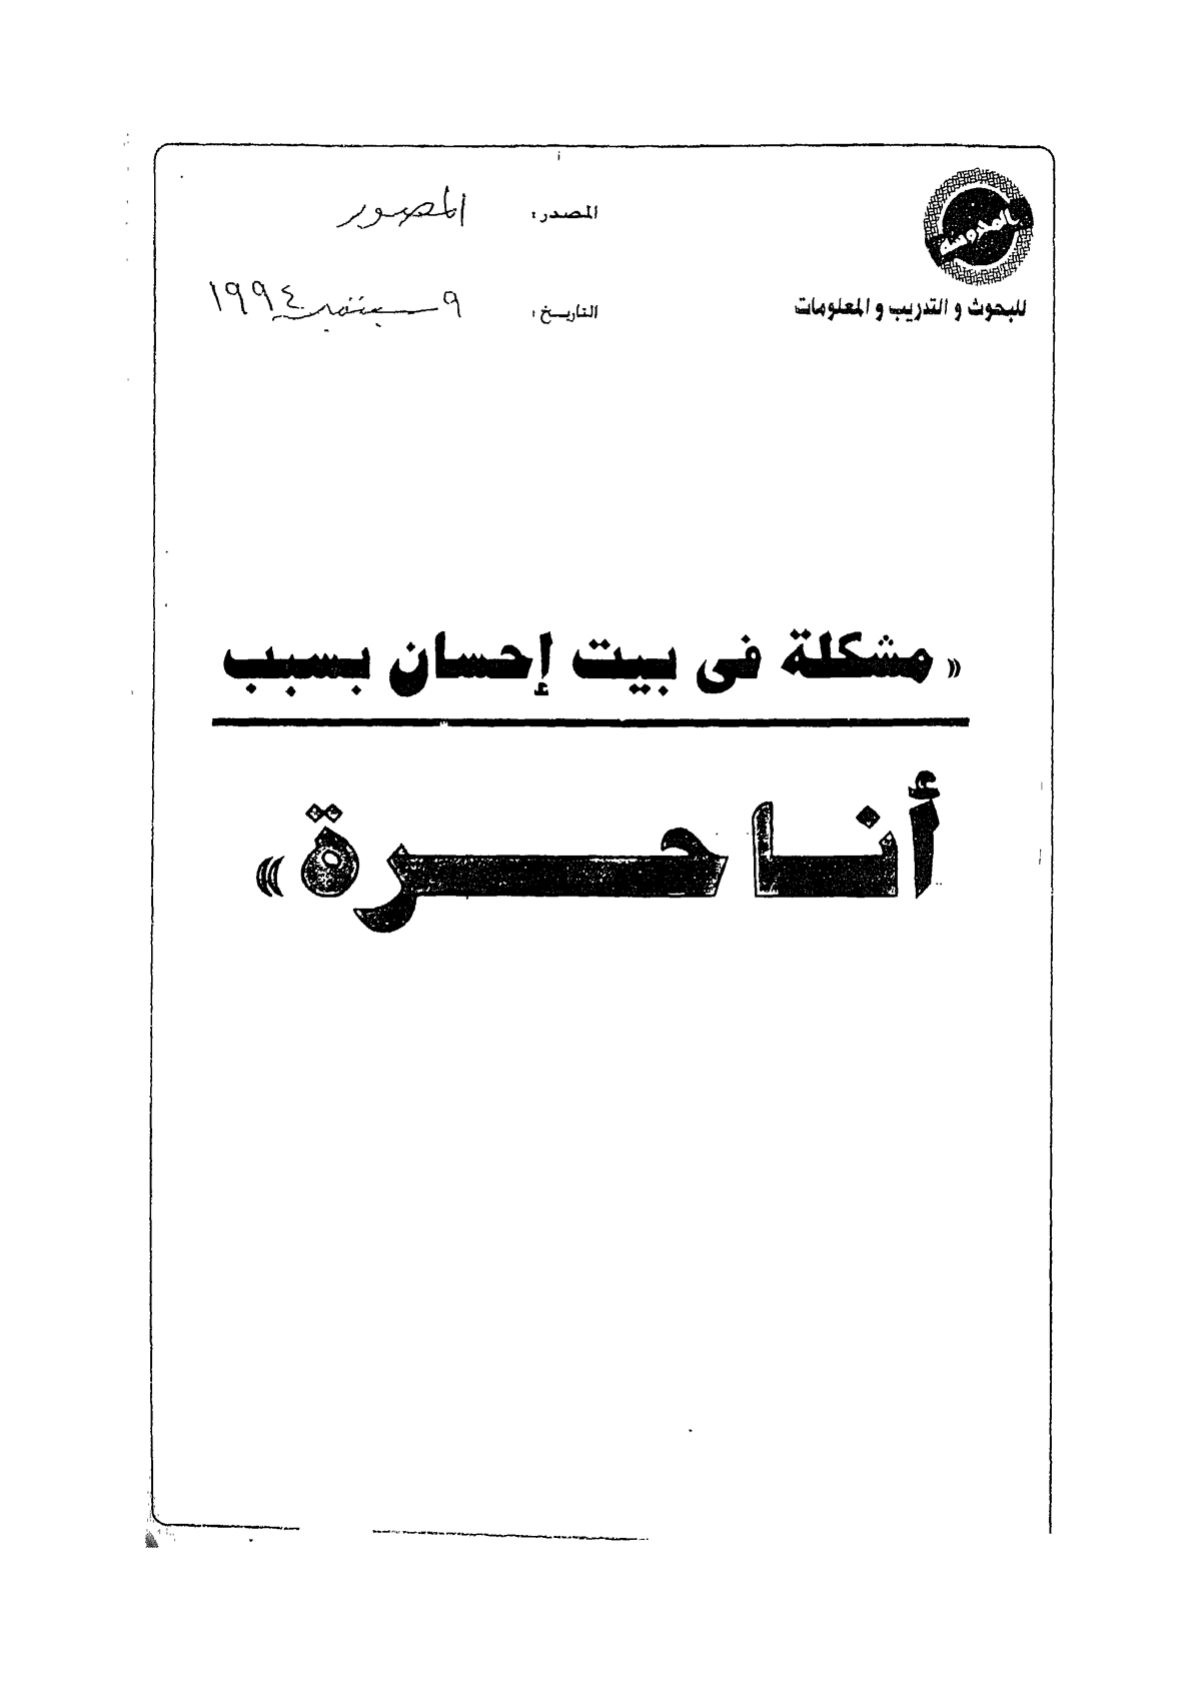 المحروسة
للبحوث و التدريب و المعلومات
المصدر: المصور
التاريخ: ٩ سبتمبر ١٩٩٤
« مشكلة فى بيت إحسان بسبب
أنا حرة »